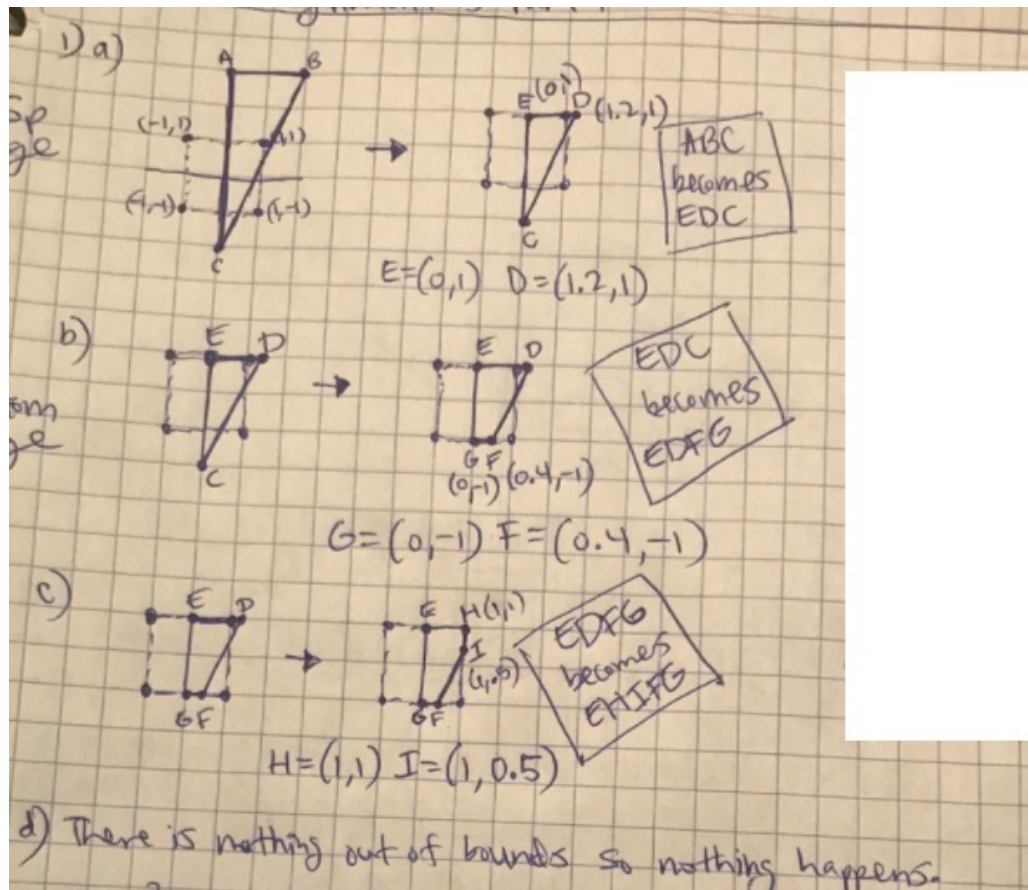 1) a)
A B
(-1,1) (1,1)
(-1,-1) (1,-1)
C
E (0,1) D (1.2,1)
C
ABC
becomes
EDC
E=(0,1) D=(1.2,1)
b)
E D
C
E D
G F
(0,-1) (0.4,-1)
EDC
becomes
EDFG
G=(0,-1) F=(0.4,-1)
c)
E D
GF
E H(1,1)
I
(1,.5)
GF
EDFG
becomes
EHIFG
H=(1,1) I=(1,0.5)
d) There is nothing out of bounds so nothing happens.